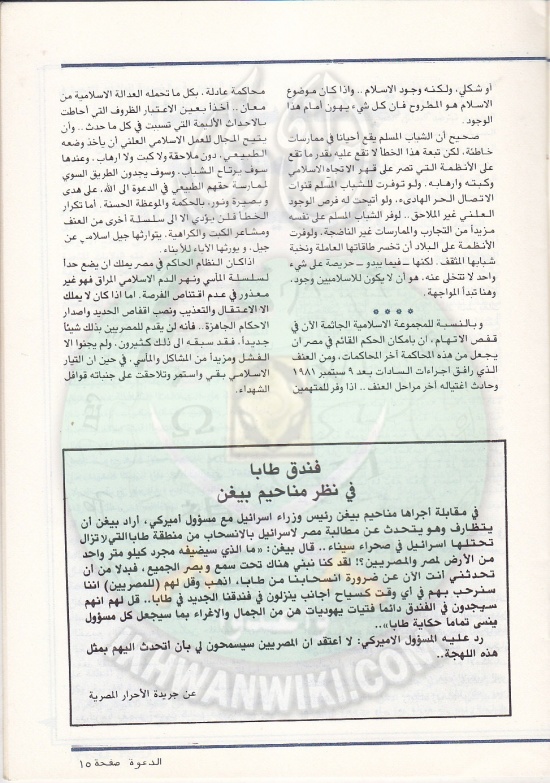 أو شكلي، ولكنه وجود الاسلام .. واذا كان موضوع
الاسلام هو المطروح فإن كل شيء يهون أمام هذا
الوجود .
صحيح أن الشباب المسلم يقع أحيانا في ممارسات
خاطئة، لكن تبعة هذا الخطأ لا تقع عليه بقدر ما تقع
على الأنظمة التي تصر على قهر الاتجاه الاسلامي
وكبته وارهابه. ولو توفرت للشباب المسلم قنوات
الاتصال الحر الهادىء، ولو أتيحت له فرص الوجود
العلني غير الملاحق .. لوفر الشباب المسلم على نفسه
مزيداً من التجارب والممارسات غير الناضجة، ولوفرت
الأنظمة على البلاد أن تخسر طاقاتها العاملة ونخبة
شبابها المثقف. لكنها ــ فيما يبدو ــ حريصة على شيء
واحد لا تتخلى عنه، هو أن لا يكون للاسلاميين وجود،
وهنا تبدأ المواجهة.
* * * *
وبالنسبة للمجموعة الاسلامية الجاثمة الآن في
قفص الاتهام، إن بامكان الحكم القائم في مصر ان
يجعل من هذه المحاكمة آخر المحاكمات، ومن العنف
الذي رافق اجراءات السادات بعد ٩ سبتمبر ١٩٨١
وحادث اغتياله آخر مراحل العنف .. اذا وفر للمتهمين
محاكمة عادلة، بكل ما تحمله العدالة الاسلامية من
معان .. آخذاً بعين الاعتبار الظروف التي أحاطت
بالاحداث الأليمة التي تسببت في كل ما حدث .. وأن
يتيح المجال للعمل الاسلامي العلني أن يأخذ وضعه
الطبيعي، دون ملاحقة ولا كبت ولا ارهاب. وعندها
سوف يرتاح الشباب، وسوف يجدون الطريق السوي
لممارسة حقهم الطبيعي في الدعوة الى الله، على هدى
وبصيرة ونور، بالحكمة والموعظة الحسنة. أما تكرار
الخطأ فلن يؤدي الا الى سلسلة أخرى من العنف
ومشاعر الكبت والكراهية، يتوارثها جيل اسلامي عن
جيل، ويورثها الآباء للأبناء.
اذا كان النظام الحاكم في مصر يملك ان يضع حداً
لسلسلة المآسي ونهر الدم الاسلامي المراق فهو غير
معذور في عدم اقتناص الفرصة. اما اذا كان لا يملك
الا الاعتقال والتعذيب ونصب اقفاص الحديد واصدار
الاحكام الجاهزة .. فأنه لن يقدم للمصريين بذلك شيئاً
جديداً. فقد سبقه الى ذلك كثيرون. ولم يجنوا الا
الفشل ومزيداً من المشاكل والمآسي، في حين ان التيار
الاسلامي بقي واستمر وتلاحقت على جنباته قوافل
الشهداء.
فندق طابا
في نظر مناحيم بيغن
في مقابلة أجراها مناحيم بيغن رئيس وزراء اسرائيل مع مسؤول أميركي، أراد بيغن أن
يتظارف وهو يتحدث عن مطالبة مصر لاسرائيل بالانسحاب من منطقة طابا التي لا تزال
تحتلها اسرائيل في صحراء سيناء .. قال بيغن: «ما الذي سيضيفه مجرد كيلو متر واحد
من الأرض لمصر والمصريين؟! لقد كنا نبني هناك تحت سمع وبصر الجميع، فبدلا من أن
تحدثني انت الآن عن ضرورة انسحابنا من طابا، اذهب وقل لهم (للمصريين) اننا
سنرحب بهم في أي وقت كسياح أجانب ينزلون في فندقنا الجديد في طابا.. قل لهم انهم
سيجدون في الفندق دائما فتيات يهوديات هن من الجمال والاغراء بما سيجعل كل مسؤول
ينسى تماماً حكاية طابا»..
رد عليه المسؤول الاميركي: لا أعتقد ان المصريين سيسمحون لي بأن أتحدث اليهم بمثل
هذه اللهجة..
عن جريدة الأحرار المصرية
IKHWANWIKI.COM
الدعوة صفحة ١٥